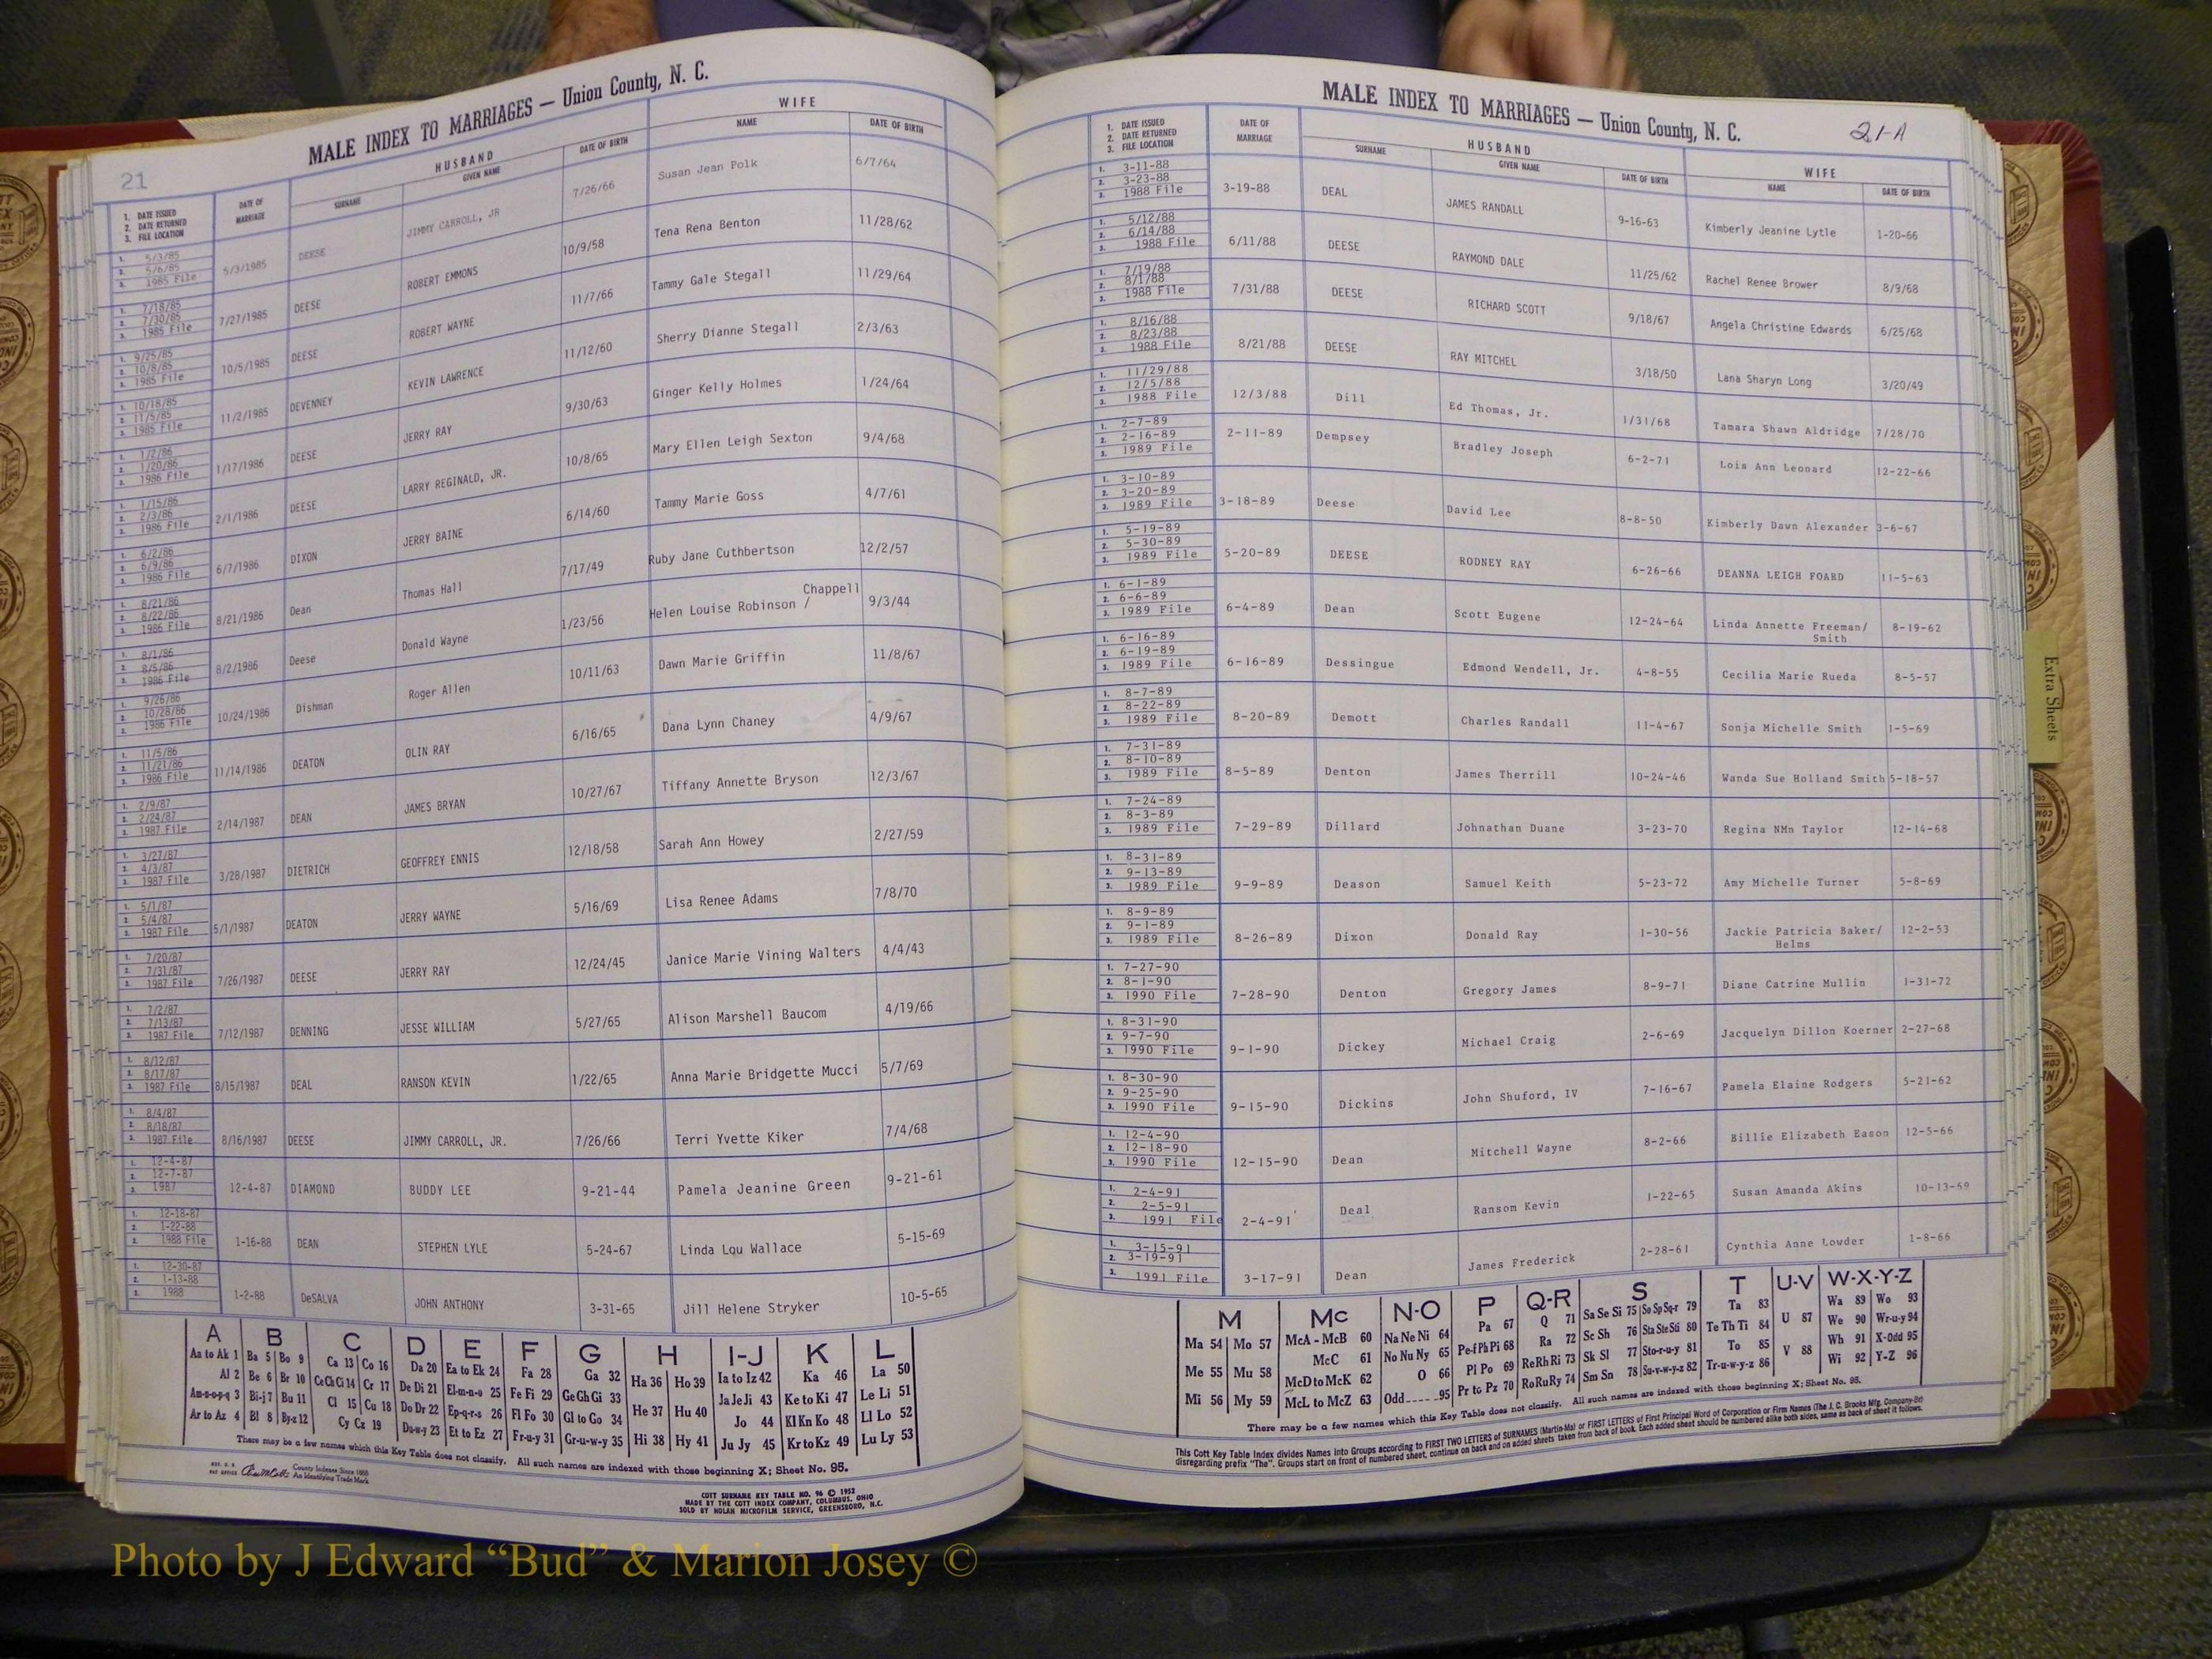 MALE INDEX TO MARRIAGES — Union County, N. C.
21
HUSBAND WIFE
1. DATE ISSUED 2. DATE RETURNED 3. FILE LOCATION DATE OF MARRIAGE SURNAME GIVEN NAME DATE OF BIRTH NAME DATE OF BIRTH
1. 5/3/85 2. 5/6/85 3. 1985 File 5/3/1985 DEESE JIMMY CARROLL, JR 7/26/66 Susan Jean Polk 6/7/64
1. 7/18/85 2. 7/30/85 3. 1985 File 7/27/1985 DEESE ROBERT EMMONS 10/9/58 Tena Rena Benton 11/28/62
1. 9/25/85 2. 10/8/85 3. 1985 File 10/5/1985 DEESE ROBERT WAYNE 11/7/66 Tammy Gale Stegall 11/29/64
1. 10/18/85 2. 11/5/85 3. 1985 File 11/2/1985 DEVENNEY KEVIN LAWRENCE 11/12/60 Sherry Dianne Stegall 2/3/63
1. 1/2/86 2. 1/20/86 3. 1986 File 1/17/1986 DEESE JERRY RAY 9/30/63 Ginger Kelly Holmes 1/24/64
1. 1/15/86 2. 2/3/86 3. 1986 File 2/1/1986 DEESE LARRY REGINALD, JR. 10/8/65 Mary Ellen Leigh Sexton 9/4/68
1. 6/2/86 2. 6/9/86 3. 1986 File 6/7/1986 DIXON JERRY BAINE 6/14/60 Tammy Marie Goss 4/7/61
1. 8/21/86 2. 8/22/86 3. 1986 File 8/21/1986 Dean Thomas Hall 7/17/49 Ruby Jane Cuthbertson 12/2/57
1. 8/1/86 2. 8/5/86 3. 1986 File 8/2/1986 Deese Donald Wayne 1/23/56 Helen Louise Robinson / Chappell 9/3/44
1. 9/26/86 2. 10/28/86 3. 1986 File 10/24/1986 Dishman Roger Allen 10/11/63 Dawn Marie Griffin 11/8/67
1. 11/5/86 2. 11/21/86 3. 1986 File 11/14/1986 DEATON OLIN RAY 6/16/65 Dana Lynn Chaney 4/9/67
1. 2/9/87 2. 2/24/87 3. 1987 File 2/14/1987 DEAN JAMES BRYAN 10/27/67 Tiffany Annette Bryson 12/3/67
1. 3/27/87 2. 4/3/87 3. 1987 File 3/28/1987 DIETRICH GEOFFREY ENNIS 12/18/58 Sarah Ann Howey 2/27/59
1. 5/1/87 2. 5/4/87 3. 1987 File 5/1/1987 DEATON JERRY WAYNE 5/16/69 Lisa Renee Adams 7/8/70
1. 7/20/87 2. 7/31/87 3. 1987 File 7/26/1987 DEESE JERRY RAY 12/24/45 Janice Marie Vining Walters 4/4/43
1. 7/2/87 2. 7/13/87 3. 1987 File 7/12/1987 DENNING JESSE WILLIAM 5/27/65 Alison Marshell Baucom 4/19/66
1. 8/12/87 2. 8/17/87 3. 1987 File 8/15/1987 DEAL RANSON KEVIN 1/22/65 Anna Marie Bridgette Mucci 5/7/69
1. 8/4/87 2. 8/18/87 3. 1987 File 8/16/1987 DEESE JIMMY CARROLL, JR. 7/26/66 Terri Yvette Kiker 7/4/68
1. 12-4-87 2. 12-7-87 3. 1987 12-4-87 DIAMOND BUDDY LEE 9-21-44 Pamela Jeanine Green 9-21-61
1. 12-18-87 2. 1-22-88 3. 1988 File 1-16-88 DEAN STEPHEN LYLE 5-24-67 Linda Lqu Wallace 5-15-69
1. 12-30-87 2. 1-13-88 3. 1988 1-2-88 DeSALVA JOHN ANTHONY 3-31-65 Jill Helene Stryker 10-5-65
A B C D E F G H I-J K L
Aa to Ak 1 Ba 5 Bo 9 Ca 13 Co 16 Da 20 Ea to Ek 24 Fa 28 Ga 32 Ha 36 Ho 39 Ia to Iz 42 Ka 46 La 50
Al 2 Be 6 Br 10 Ce Ch Ci 14 Cr 17 De Di 21 El-m-n-o 25 Fe Fi 29 Ge Gh Gi 33 He 37 Hu 40 Ja Je Ji 43 Ke to Ki 47 Le Li 51
Am-n-o-p-q 3 Bi-j 7 Bu 11 Cl 15 Cu 18 Do Dr 22 Ep-q-r-s 26 Fl Fo 30 Gl to Go 34 Hi 38 Hy 41 Jo 44 Kl Kn Ko 48 Ll Lo 52
Ar to Az 4 Bl 8 By-z 12 Cy Cz 19 Du-w-y 23 Et to Ez 27 Fr-u-y 31 Gr-u-w-y 35 Ju Jy 45 Kr to Kz 49 Lu Ly 53
There may be a few names which this Key Table does not classify. All such names are indexed with those beginning X; Sheet No. 95.
County Indexes Since 1888
An Identifying Trade Mark
COTT SURNAME KEY TABLE NO. 96 © 1952
MADE BY THE COTT INDEX COMPANY, COLUMBUS, OHIO
SOLD BY NOLAN MICROFILM SERVICE, GREENSBORO, N.C.
MALE INDEX TO MARRIAGES — Union County, N. C.
21-A
HUSBAND WIFE
1. DATE ISSUED 2. DATE RETURNED 3. FILE LOCATION DATE OF MARRIAGE SURNAME GIVEN NAME DATE OF BIRTH NAME DATE OF BIRTH
1. 3-11-88 2. 3-23-88 3. 1988 File 3-19-88 DEAL JAMES RANDALL 9-16-63 Kimberly Jeanine Lytle 1-20-66
1. 5/12/88 2. 6/14/88 3. 1988 File 6/11/88 DEESE RAYMOND DALE 11/25/62 Rachel Renee Brower 8/9/68
1. 7/19/88 2. 8/1/88 3. 1988 File 7/31/88 DEESE RICHARD SCOTT 9/18/67 Angela Christine Edwards 6/25/68
1. 8/16/88 2. 8/23/88 3. 1988 File 8/21/88 DEESE RAY MITCHEL 3/18/50 Lana Sharyn Long 3/20/49
1. 11/29/88 2. 12/5/88 3. 1988 File 12/3/88 Dill Ed Thomas, Jr. 1/31/68 Tamara Shawn Aldridge 7/28/70
1. 2-7-89 2. 2-16-89 3. 1989 File 2-11-89 Dempsey Bradley Joseph 6-2-71 Lois Ann Leonard 12-22-66
1. 3-10-89 2. 3-20-89 3. 1989 File 3-18-89 Deese David Lee 8-8-50 Kimberly Dawn Alexander 3-6-67
1. 5-19-89 2. 5-30-89 3. 1989 File 5-20-89 DEESE RODNEY RAY 6-26-66 DEANNA LEIGH FOARD 11-5-63
1. 6-1-89 2. 6-6-89 3. 1989 File 6-4-89 Dean Scott Eugene 12-24-64 Linda Annette Freeman/ Smith 8-19-62
1. 6-16-89 2. 6-19-89 3. 1989 File 6-16-89 Dessingue Edmond Wendell, Jr. 4-8-55 Cecilia Marie Rueda 8-5-57
1. 8-7-89 2. 8-22-89 3. 1989 File 8-20-89 Demott Charles Randall 11-4-67 Sonja Michelle Smith 1-5-69
1. 7-31-89 2. 8-10-89 3. 1989 File 8-5-89 Denton James Therrill 10-24-46 Wanda Sue Holland Smith 5-18-57
1. 7-24-89 2. 8-3-89 3. 1989 File 7-29-89 Dillard Johnathan Duane 3-23-70 Regina NMn Taylor 12-14-68
1. 8-31-89 2. 9-13-89 3. 1989 File 9-9-89 Deason Samuel Keith 5-23-72 Amy Michelle Turner 5-8-69
1. 8-9-89 2. 9-1-89 3. 1989 File 8-26-89 Dixon Donald Ray 1-30-56 Jackie Patricia Baker/ Helms 12-2-53
1. 7-27-90 2. 8-1-90 3. 1990 File 7-28-90 Denton Gregory James 8-9-71 Diane Catrine Mullin 1-31-72
1. 8-31-90 2. 9-7-90 3. 1990 File 9-1-90 Dickey Michael Craig 2-6-69 Jacquelyn Dillon Koerner 2-27-68
1. 8-30-90 2. 9-25-90 3. 1990 File 9-15-90 Dickins John Shuford, IV 7-16-67 Pamela Elaine Rodgers 5-21-62
1. 12-4-90 2. 12-18-90 3. 1990 File 12-15-90 Dean Mitchell Wayne 8-2-66 Billie Elizabeth Eason 12-5-66
1. 2-4-91 2. 2-5-91 3. 1991 File 2-4-91 Deal Ransom Kevin 1-22-65 Susan Amanda Akins 10-13-69
1. 3-15-91 2. 3-19-91 3. 1991 File 3-17-91 Dean James Frederick 2-28-61 Cynthia Anne Lowder 1-8-66
M Mc N-O P Q-R S T U-V W-X-Y-Z
Ma 54 Mo 57 McA - McB 60 Na Ne Ni 64 Pa 67 Q 71 Sa Se Si 75 So Sp Sq-r 79 Ta 83 U 87 Wa 89 Wo 93
Me 55 Mu 58 McC 61 No Nu Ny 65 Pe-f Ph Pi 68 Ra 72 Sc Sh 76 Sta Ste Sti 80 Te Th Ti 84 V 88 We 90 Wr-u-y 94
Mi 56 My 59 McD to McK 62 O 66 Pl Po 69 Re Rh Ri 73 Sk Sl 77 Sto-r-u-y 81 To 85 Wh 91 X-Odd 95
McL to McZ 63 Odd 95 Pr to Pz 70 Ro Ru Ry 74 Sm Sn 78 Su-v-w-y-z 82 Tr-u-w-y-z 86 Wi 92 Y-Z 96
There may be a few names which this Key Table does not classify. All such names are indexed with those beginning X; Sheet No. 95.
This Cott Key Table Index divides Names into Groups according to FIRST TWO LETTERS of SURNAMES (Martin-Ma) or FIRST LETTERS of First Principal Word of Corporation or Firm Names (The J. C. Brooks Mfg. Company-Br)
disregarding prefix "The". Groups start on front of numbered sheet, continue on back and on added sheets taken from back of book. Each added sheet should be numbered alike both sides, same as back of sheet it follows.
Extra Sheets
Photo by J Edward “Bud” & Marion Josey ©